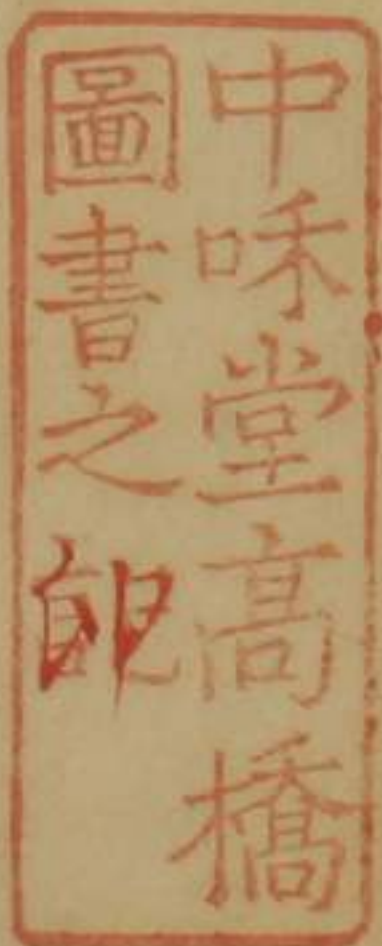 中咊堂高橋
圖書之